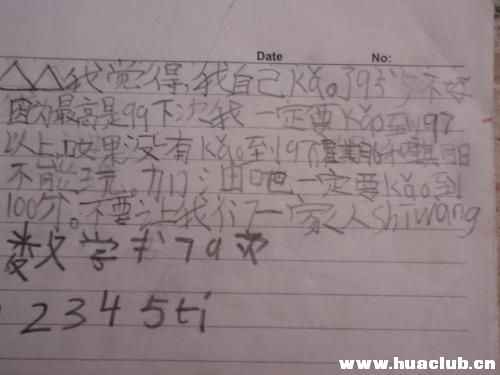 Date No:
△△我觉得,我自己kǎo了95分不好
因为最高是99下次我一定要kǎo到97
以上。如果没有kǎo到97
不能玩。加油吧一定要kǎo到
100分。不要让我们一家人shīwàng
数学书79页
2 3 4 5 tí
www.huaclub.cn